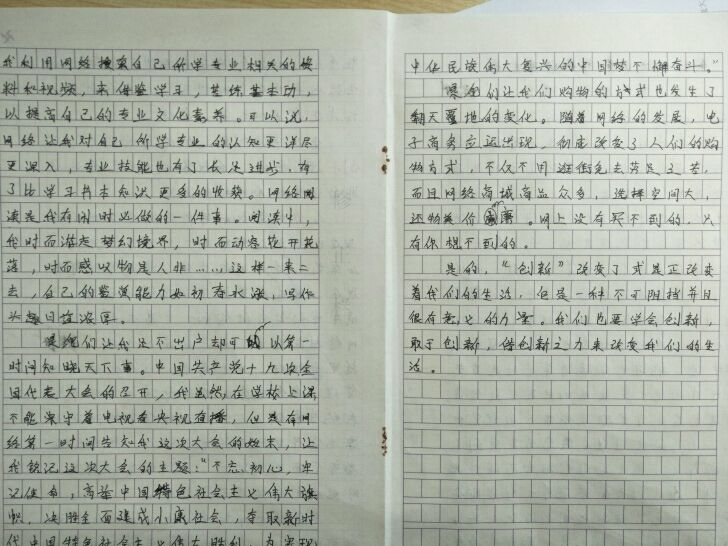 我们用网络搜索自己所学专业相关的资
料和视频，来借鉴学习，苦练基本功，
以提高自己的专业文化素养。可以说，
网络让我对自己所学专业的认知更详尽
更深入，专业技能也有了长足进步，有
了比学习书本知识更多的收获。网络阅
读是我有闲时必做的一件事。阅读中，
我时而游走梦幻境界，时而动容花开花
落，时而感叹物是人非……，这样一来二
去，自己的鉴赏能力如初春水涨，写作
兴趣日益浓厚。
们让我足不出户却可以第一
时间知晓天下事。中国共产党十九次全
国代表大会的召开，我虽然在学校上课
不能守着电视看央视直播，但是有网
络第一时间告知我这次大会的始末，让
我铭记这次大会的主题：“不忘初心，牢
记使命，高举中国特色社会主义伟大旗
帜，决胜全面建成小康社会，夺取新时
代中国特色社会主义伟大胜利，为实现
中华民族伟大复兴的中国梦不懈奋斗。”
们让我们购物的方式也发生了
翻天覆地的变化。随着网络的发展，电
子商务应运出现，彻底改变了人们的购
物方式，不仅不用逛街免去劳足之苦，
而且网络商城商品众多，选择空间大，
还物美价廉。网上没有买不到的，只
有你想不到的。
是的，“创新”改变了或是正改变
着我们的生活，但是一种不可阻挡并且
很有意义的力量。我们也要学会创新，
敢于创新，借创新之力来改变我们的生
活。